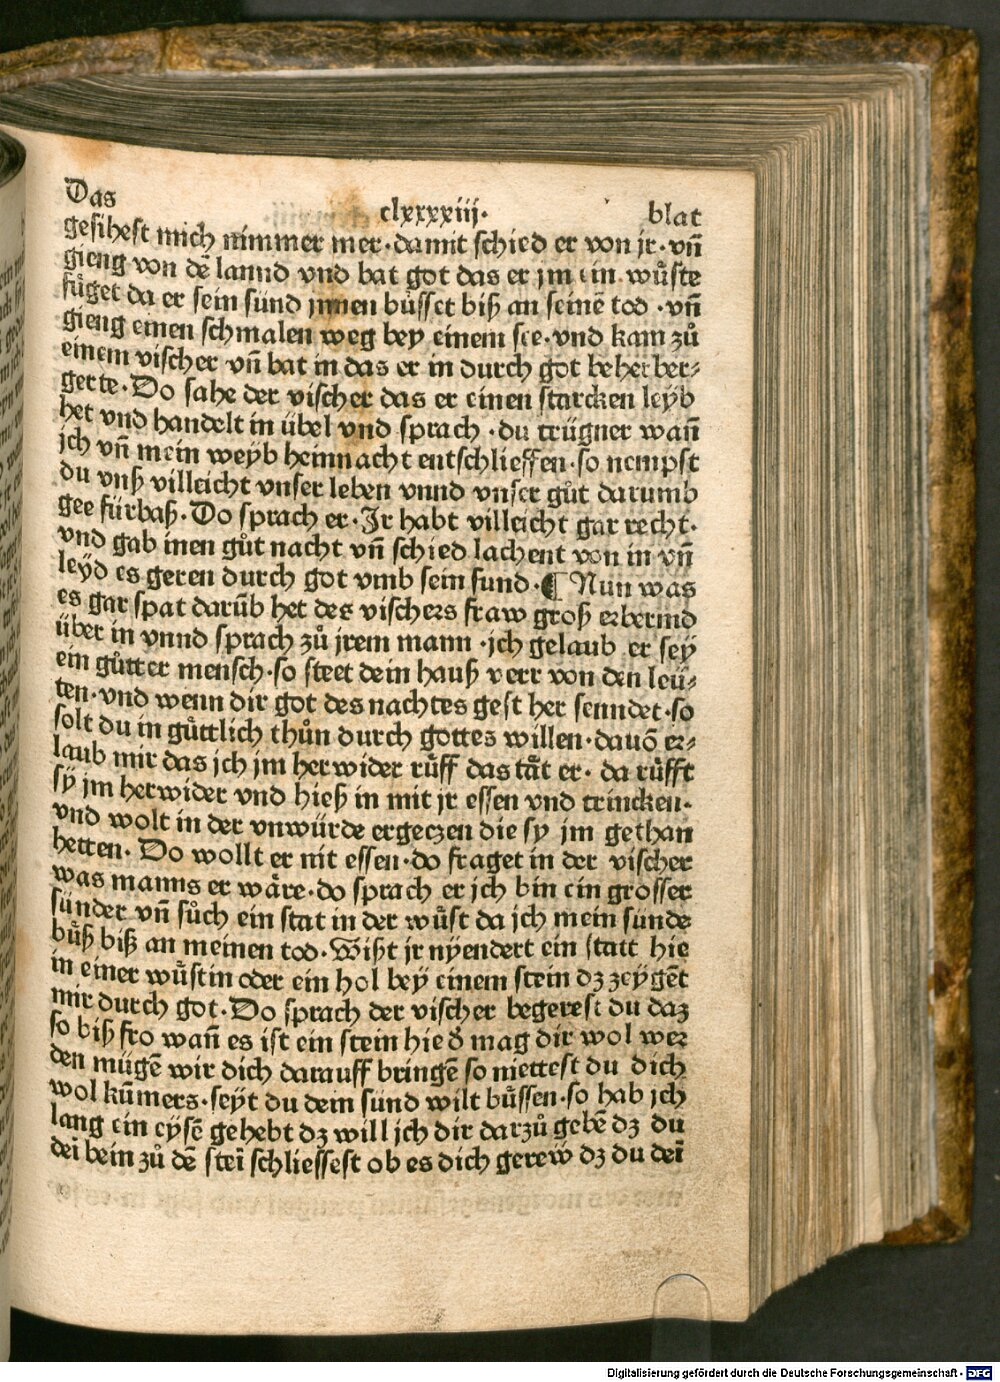 Das clxxxxiij· blat
gesihest mich nimmer mer·damit schied er von jr·vn̄
gieng von dē lannd vnd bat got das er jm ein wuͤste
fuͤget da er sein sünd jnnen buͦsset biß an seinē tod ·vn̄
gieng einen schmalen weg bey einem see·vnd kam zuͦ
einem vischer vn̄ bat in das er in durch got beherber⸗
gerte·Do sahe der vischer das er einen starcken leÿb
het vnd handelt in übel vnd sprach ·du trügner wan̄
jch vn̄ mein weÿb heinnacht entschlieffen·so nempst
du vnß villeicht vnser leben vnnd vnser guͦt darumb
gee fürbaß·Do sprach er·Ir habt villeicht gar recht·
vnd gab inen guͦt nacht vn̄ schied lachent von in vn̄
leÿd es geren durch got vmb sein sund·¶ Nun was
es gar spat darūb het des vischers fraw groß erbermd
über in vnnd sprach zuͦ jrem mann ·jch gelaub er sey
ein guͦtter mensch·so steet dein hauß verr von den leü⸗
ten·vnd wenn dir got des nachtes gest her senndet·so
solt du in guͤttlich thuͦn durch gottes willen·dauō er⸗
laub mir das jch jm herwider ruͤff das taͤt er· da ruͤfft
sÿ jm herwider vnd hieß in mit jr essen vnd trincken·
vnd wolt in der vnwürde ergeczen die sy jm gethan
hetten· Do wollt er nit essen·do fraget in der vischer
was manns er waͤre·do sprach er jch bin ein grosser
sünder vn̄ suͦch ein stat in der wuͤst da jch mein sünde
buͤß biß an meinen tod·Wißt jr nÿendert ein statt hie
in einer wuͤstin oder ein hol beÿ einem stein dz zeÿgēt
mir durch got·Do sprach der vischer begerest du daz
so biß fro wan̄ es ist ein stein hie d̕ mag dir wol wer
den mügē wir dich darauff bringē so niettest du dich
wol kūmers·seÿt du dem sünd wilt buͤssen·so hab jch
lang ein eÿsē gehebt dz will jch dir darzuͦ gebē dz du
deī bein zuͦ dē steī schliessest ob es dich gerew dz du deī
Digitalisierung gefördert durch die Deutsche Forschungsgemeinschaft - DFG